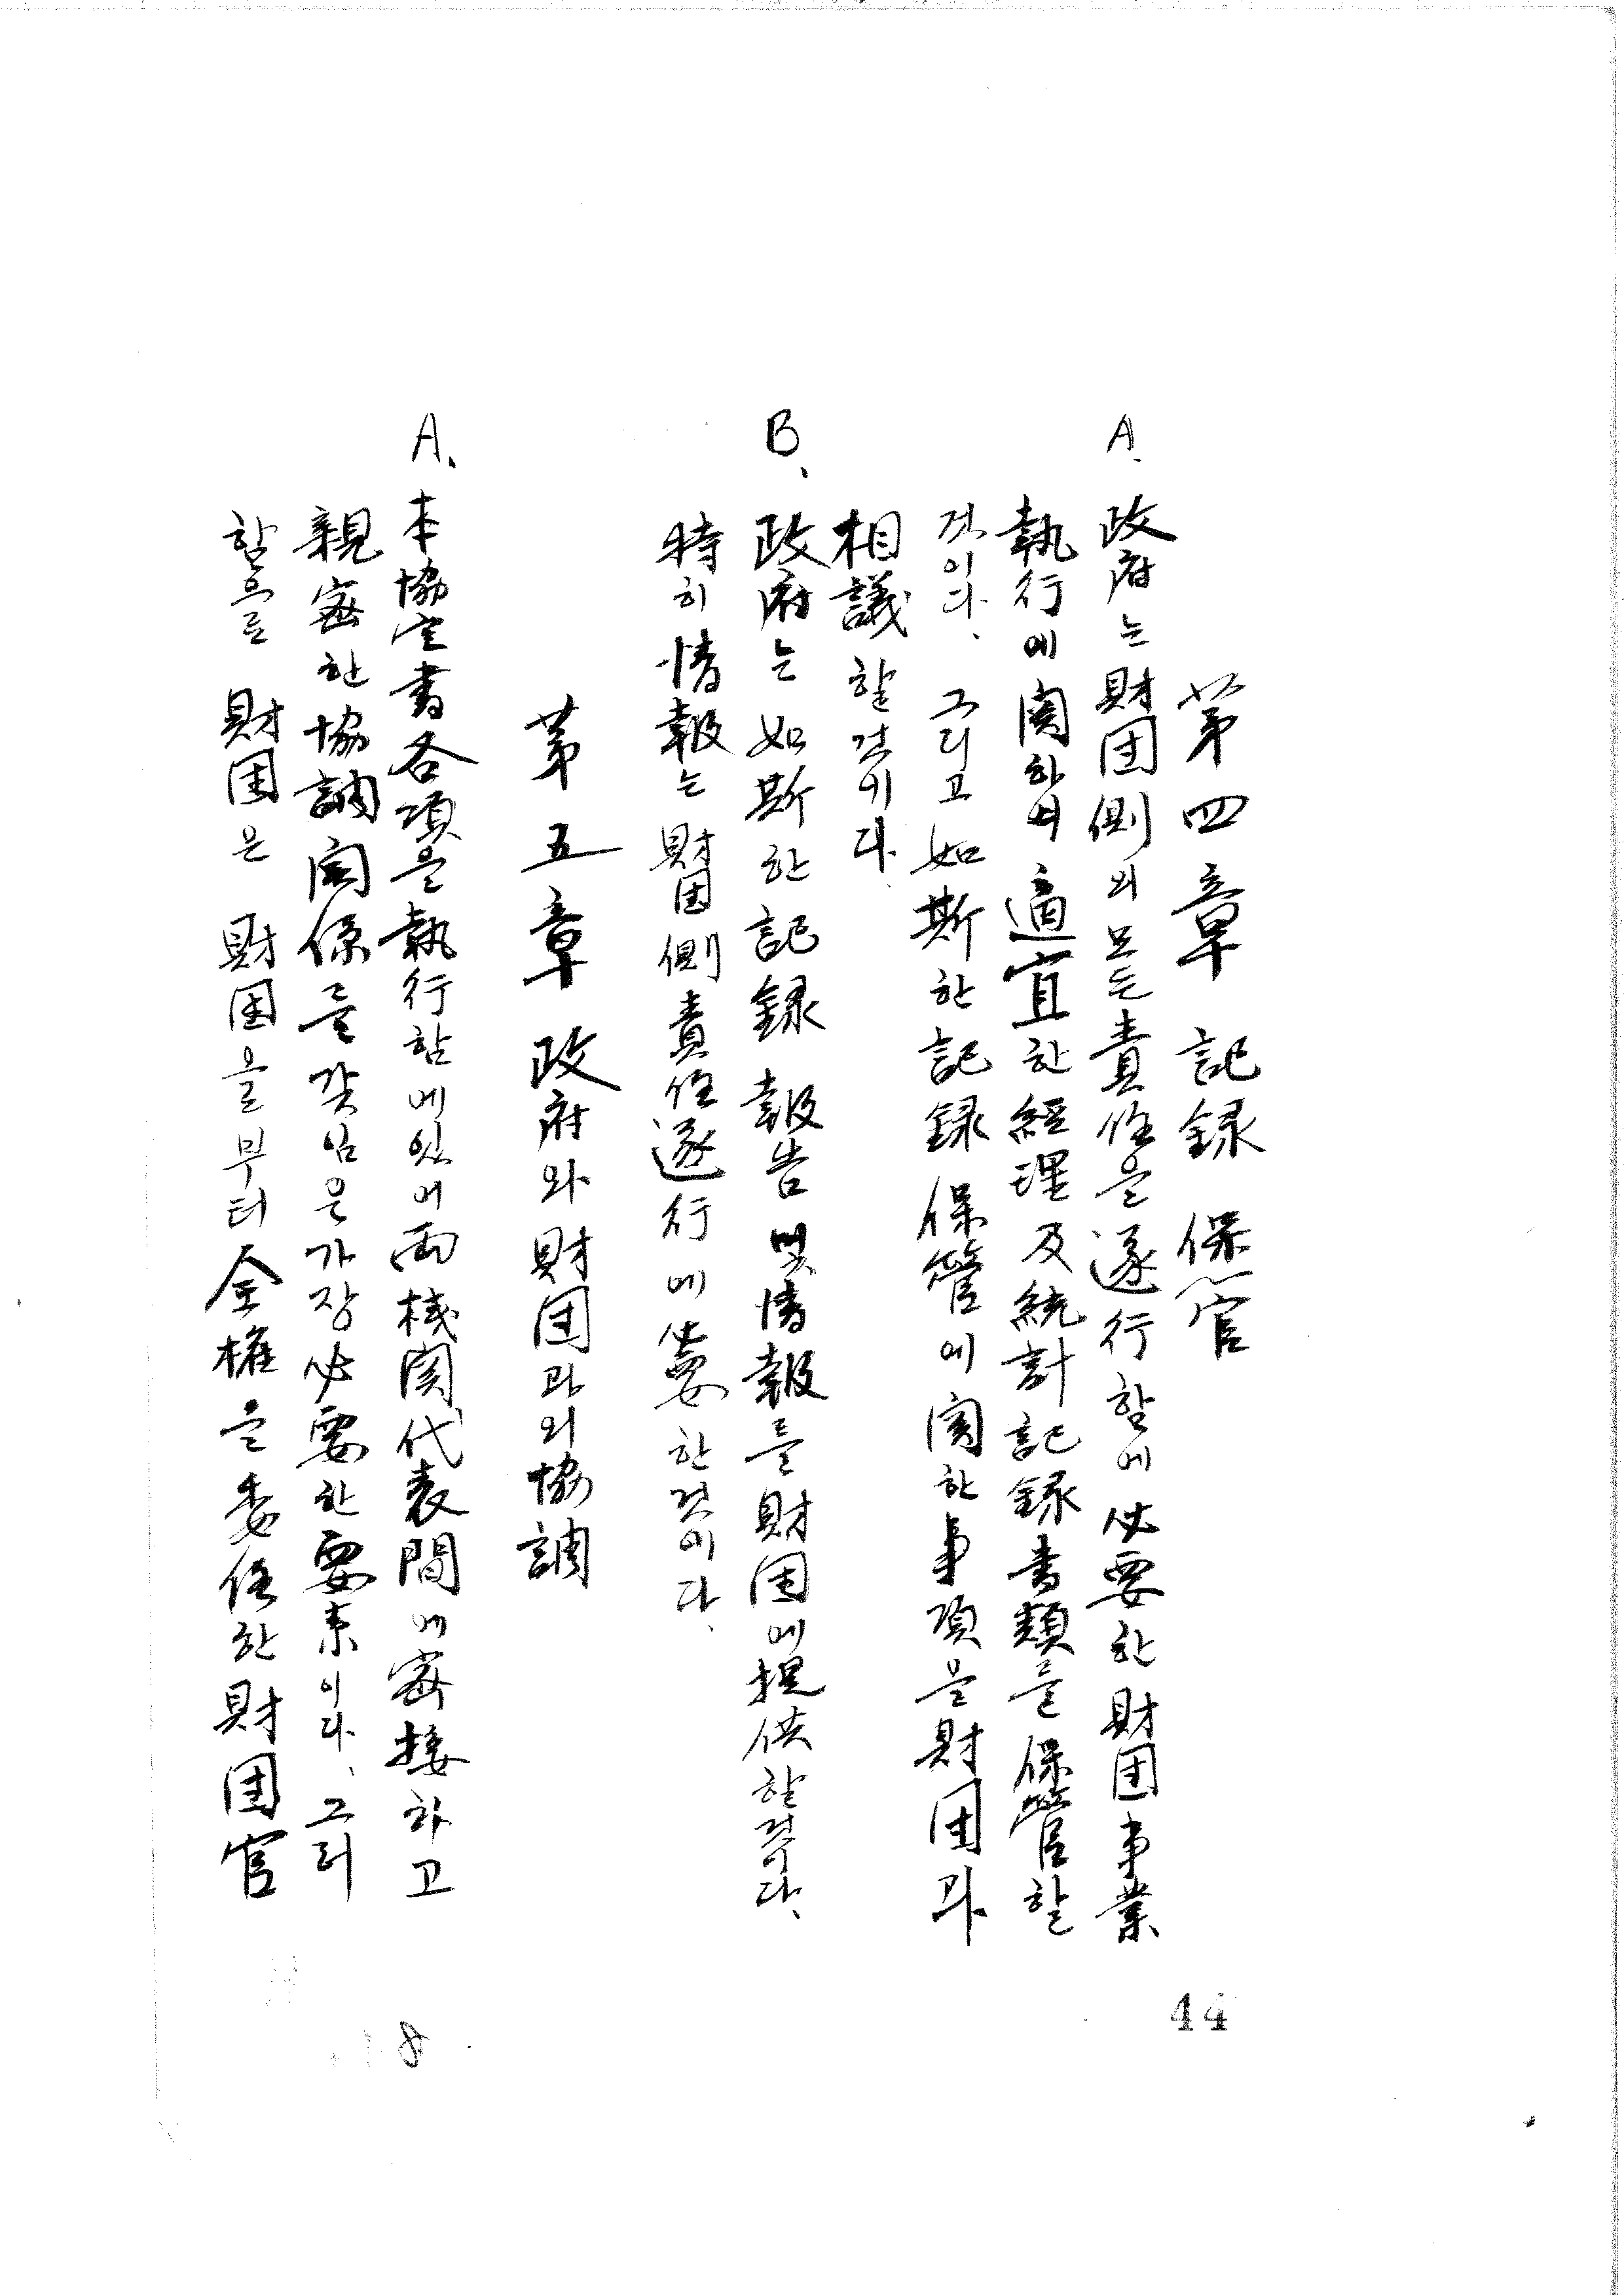 第四章 記録 保管
A. 政府는 財団側의 모든 責任을 遂行함에 必要한 財団事業
執行에 関하여 適宜한 経理及統計記録書類를 保管할
것이다. 그리고 如斯한 記録 保管에 関한 事項을 財団과
相議할것이다.
B、政府는 如斯한 記録 報告 및 情報를 財団에 提供할것이다、
特히 情報는 財団側 責任遂行에 必要한것이다.
第五章 政府와 財団과의 協調
A、本協定書各項을 執行함에있어 両機関代表間에 密接하고
親密한 協調関係를 갖임은 가장 必要한 要素이다、그러
함으로 財団은 財団을부터 全権을 委任한 財団官
44
8